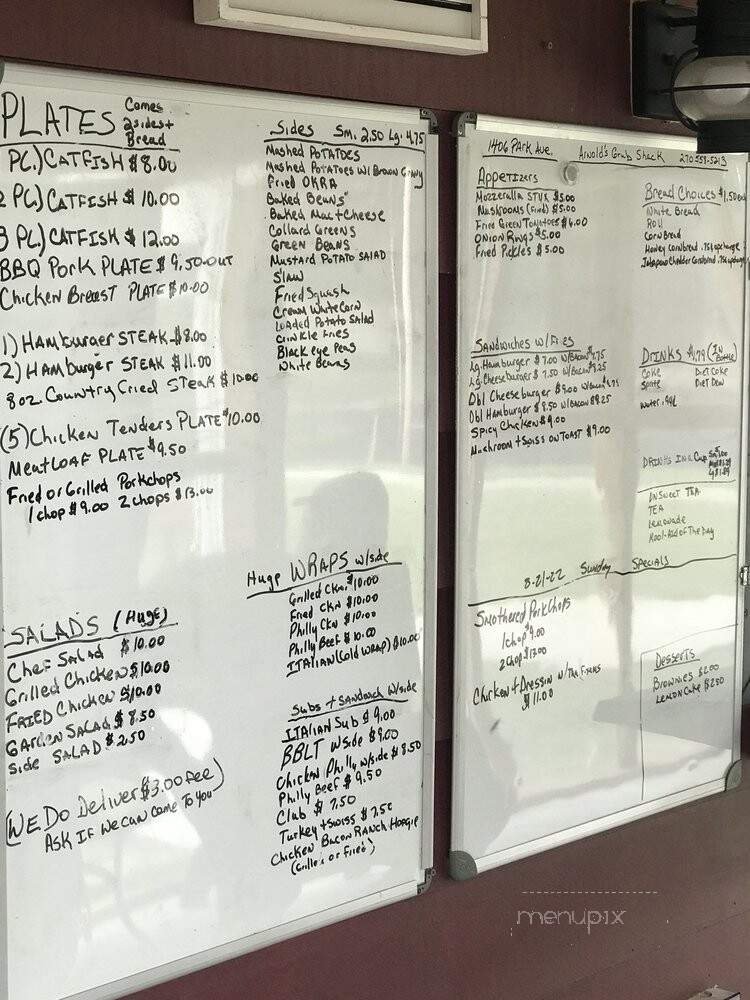 PLATES Comes 2 sides + Bread
PC.) CATFISH $8.00
2 PC) CATFISH $10.00
3 PC) CATFISH $12.00
BBQ PORK PLATE $9.50-OUT
Chicken Breast PLATE $10.00
1) HAmburger STEAK $8.00
2) HAmburger STEAK $11.00
8 oz. Country Fried STeak $10.00
(5) Chicken Tenders PLATE $10.00
MeatLOAF PLATE $9.50
Fried or Grilled Porkchops
1 chop $9.00 2 chops $13.00
SALADS (Huge)
Chef SALAD $10.00
Grilled Chicken $10.00
FRIED Chicken $10.00
GARden SALAD $8.50
Side SALAD $2.50
(WE DO Deliver $3.00 fee)
ASK IF WE CAN COME TO YOU
Sides Sm. 2.50 Lg. 4.75
MAShed POTATOES
MAShed POTATOES W/ Brown Gravy
Fried OKRA
Baked BeANS
BAKed MAC + Cheese
Collard Greens
Green BeANS
MustARd POTATO SALAD
SLAW
Fried SquASh
CreAM White Corn
LOADED POTATO SALAD
Crinkle Fries
Black eye Peas
White BeANS
Huge WRAPS w/side
Grilled CKn. $10.00
Fried CKN $10.00
Philly CKn $10.00
Philly Beef $10.00
ITALIAN (COLD WRAP) $10.00
Subs + SANdwich W/side
ITALIAN Sub $9.00
BBLT W/Side $9.00
Chicken Philly w/side $8.50
Philly Beef $9.50
Club $7.50
Turkey + Swiss $7.50
Chicken BACON RANCH HOAGIE
(Grilled or Fried)
1406 PARK Ave. ARNOLd's Grub ShACK 270 559-5213
Appetizers
Mozzeralla STIX $5.00
Mushrooms (Fried) $5.00
Fried Green Tomatoes $6.00
ONION Rings $5.00
Fried Pickles $5.00
Bread Choices $1.50 each
White BreAd
Roll
CORNBread
Honey Cornbread .75¢ upcharge
Jalapeno Chedder Cornbread .75¢ upcharge
SANdwiches W/ Fries
Lg. HAmburger $7.00 W/BACON $7.75
Lg. Cheeseburger $7.50 W/BACON $8.25
Dbl Cheeseburger $9.00 W/BACON $9.75
Dbl Hamburger $8.50 W/BACON $9.25
Spicy Chicken $9.00
Mushroom + Swiss ON TOAST $9.00
DRINKS $1.79 (IN Bottle)
Coke Diet Coke
Sprite Diet Dew
Water .99¢
DRINKS IN A Cup
UNSweet TEA
TEA
Lemonade
Kool-Aid of The Day
8-21-22 Sunday SPECIALS
Smothered PorkChops
1 chop $9.00
2 chop $13.00
Chicken + Dressin W/ The Fixens
$11.00
Desserts
Brownies $2.00
Lemon Cake $2.50
menupix